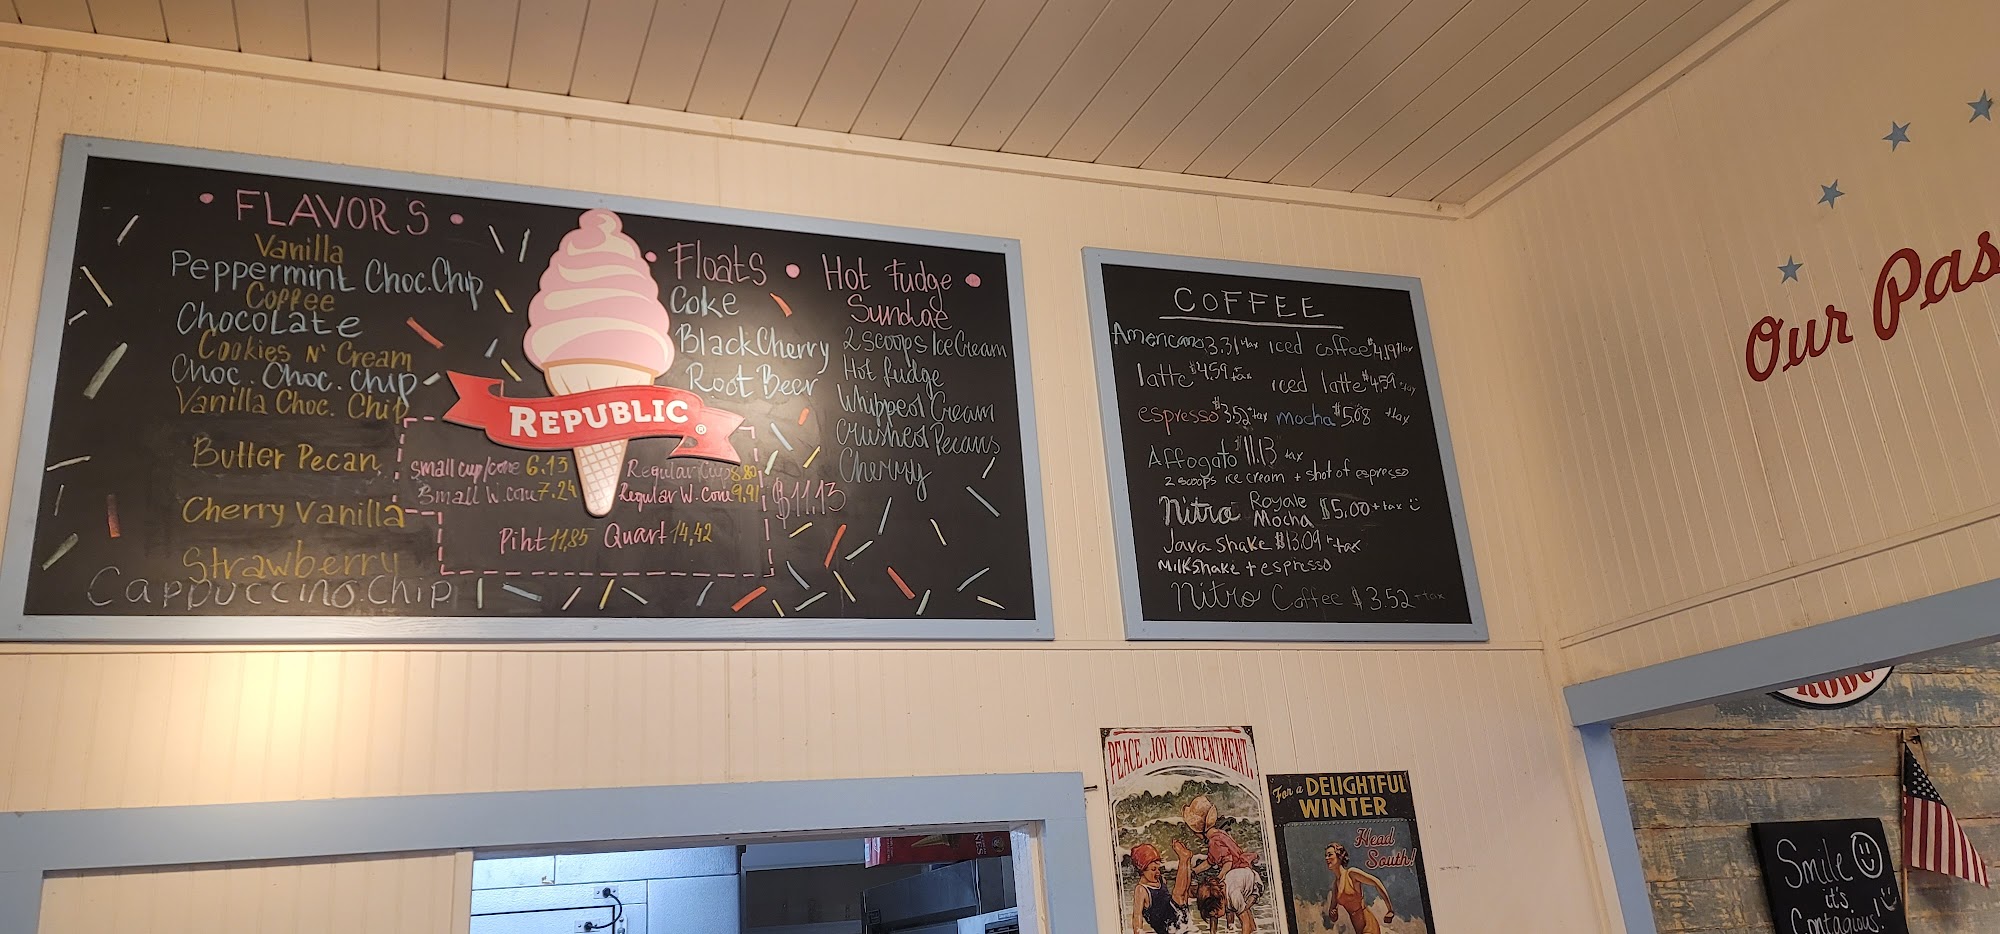 FLAVORS
Vanilla
Peppermint Choc.Chip
Coffee
Chocolate
Cookies N' Cream
Choc. Choc. Chip
Vanilla Choc. Chip
Butter Pecan
Cherry Vanilla
Strawberry
Cappuccino.Chip
REPUBLIC®
small cup/cone 6.13
Small W. cone 7.24
Regular Cup 8.82
Regular W. Cone 9.91
Piht 11,85 Quart 14,42
Floats
Coke
Black Cherry
Root Beer
$11.13
Hot fudge
Sundae
2 scoops Ice Cream
Hot fudge
Whipped Cream
Crushed Pecans
Cherry
COFFEE
Americano 3.31+tax iced coffee $4.19+tax
latte $4.59+tax iced latte $4.59+tax
espresso $3.52+tax mocha $5.08 +tax
Affogato $11.13 tax
2 scoops ice cream + shot of espresso
Nitro Royale Mocha $5.00+tax
Java Shake $13.09 +tax
Milkshake + espresso
Nitro Coffee $3.52+tax
Our Pas
PEACE.JOY.CONTENTMENT.
For a DELIGHTFUL
WINTER
Head
South!
Smile
it's
Contagious!